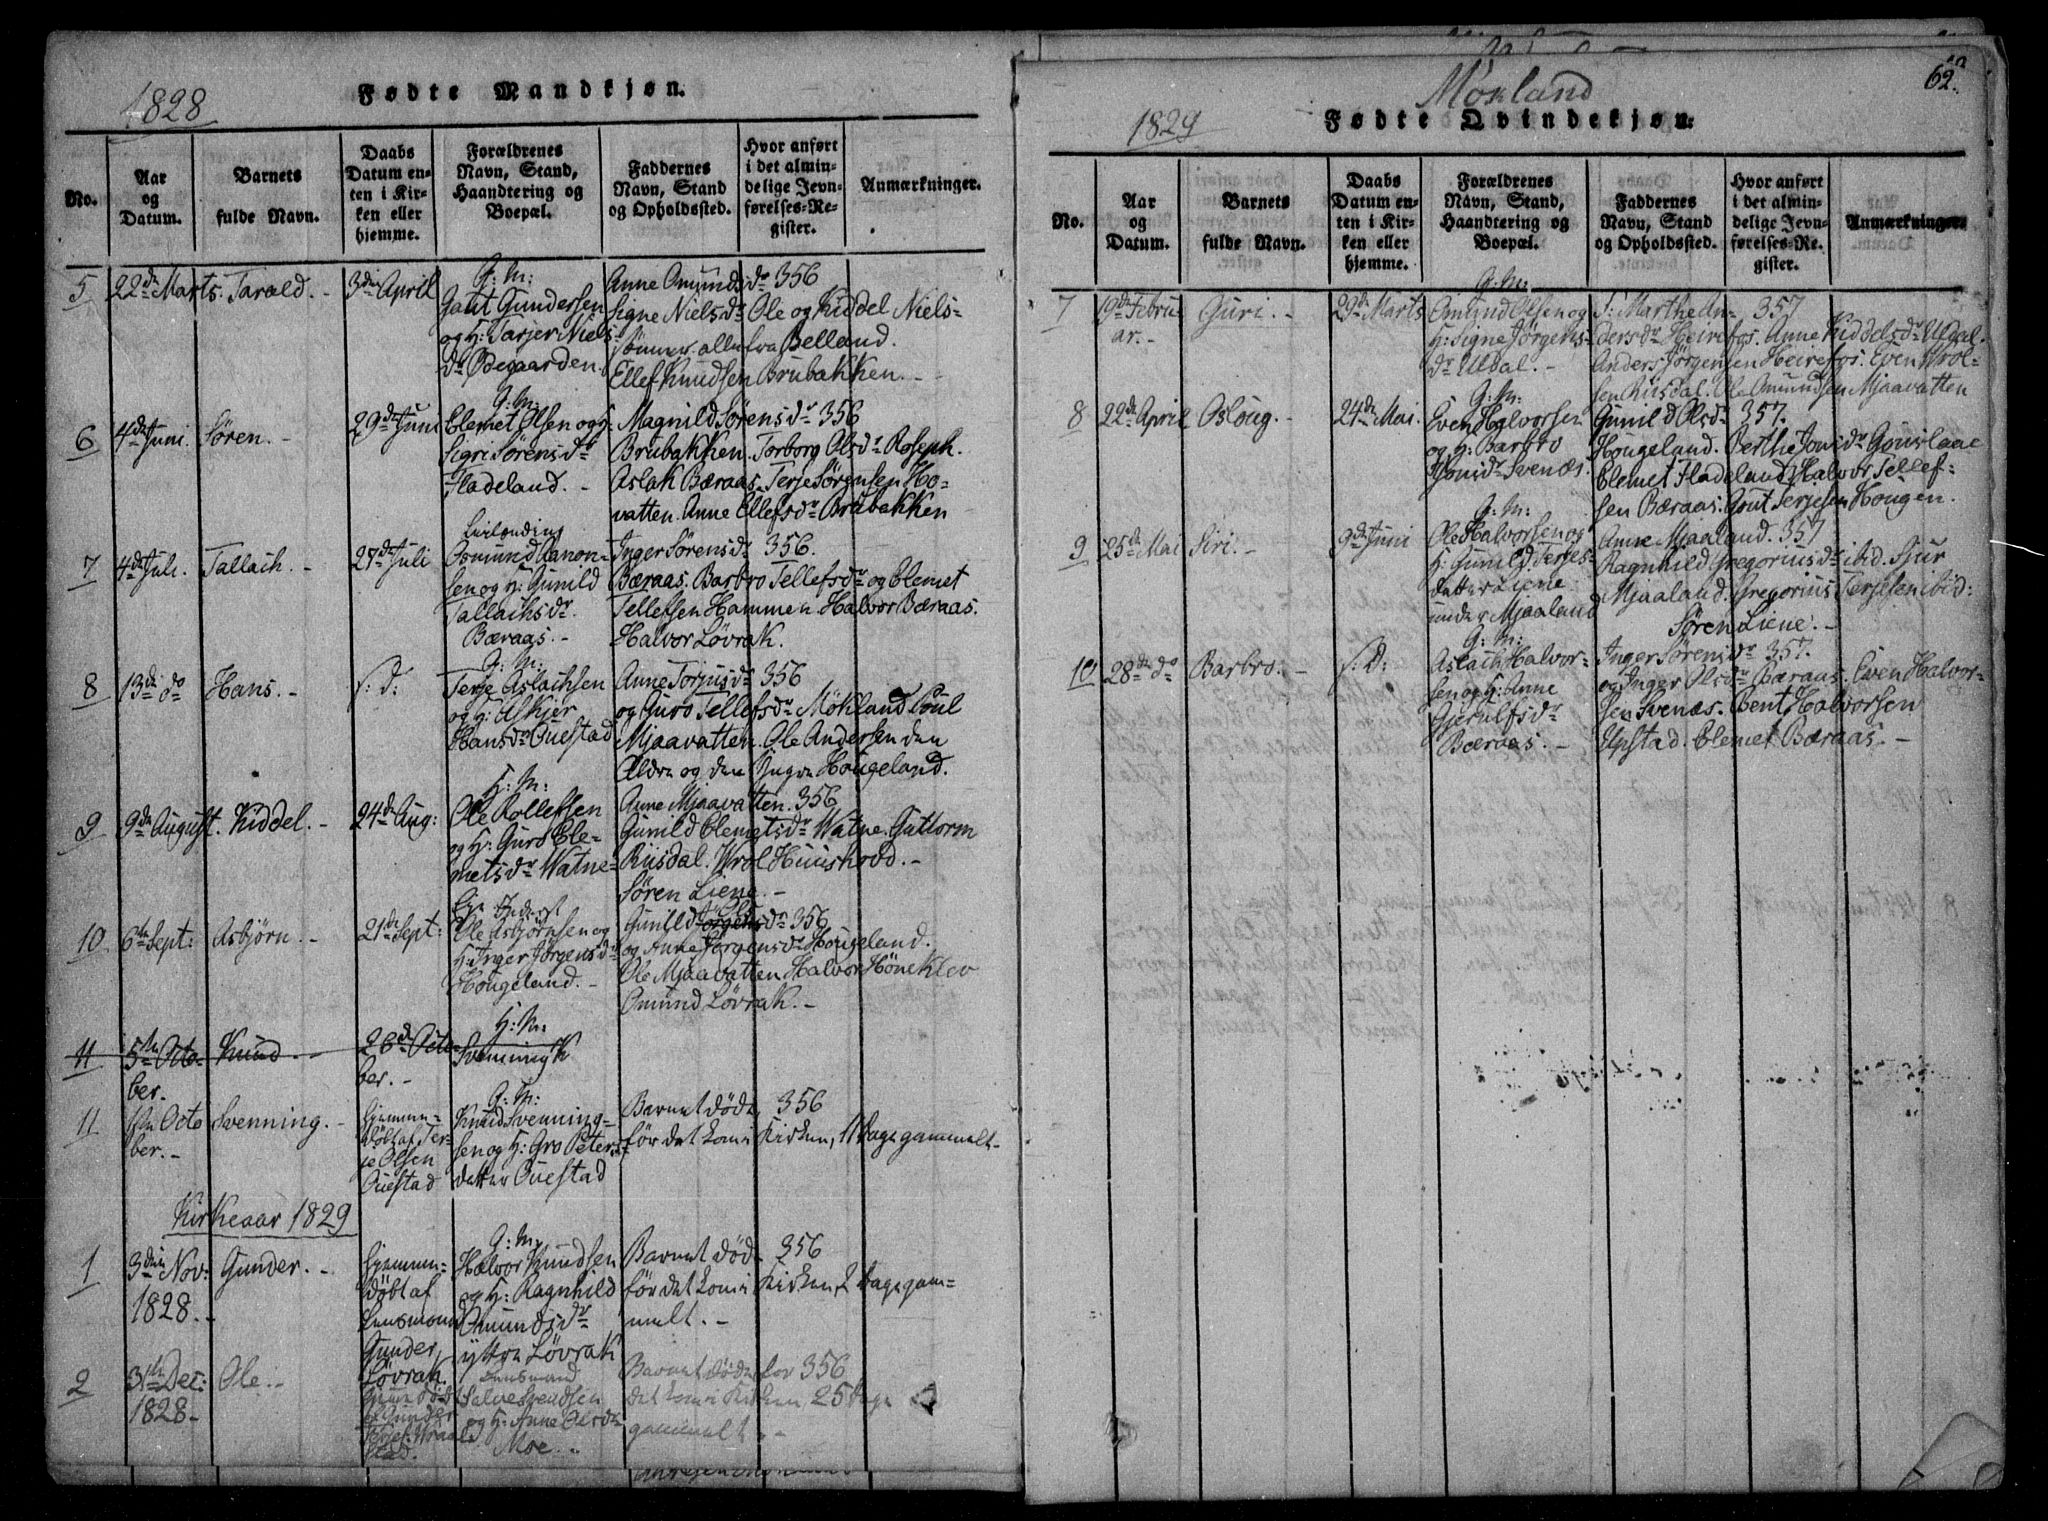 1828
Fødte Mandkjøn.
No.
Aar
og
Datum.
Barnets
fulde Navn.
Daabs
Datum en-
ten i Kir-
ken eller
hjemme.
Forældrenes
Navn, Stand,
Haandtering og
Boepæl.
Faddernes
Navn, Stand
og Opholdssted.
Hvor anført
i det almin-
delige Jevn-
førelses-Re-
gister.
Anmærkninger.
5
22de Marts.
Tarald.
3die April
G: M:
Gaut Gundersen
og H: Tarjer Niels-
dr Ødegaarden.
Anne Omundsdr 356
Signe Nielsdr Ole og Kiddel Niels-
sønner alle fra Belland.
Ellef Knudsen Brubakken. -
6
4de Juni.
Søren. -
29de Juni
G: M:
Clemet Olsen og H:
Sigri Sørensdr
Fladeland. -
Magnild Sørensdr 356
Brubakken. Torborg Olsdr Roseph.
Aslak Bæraas. Terje Sørensen Ho-
vatten. Anne Ellefsdr Brubakken
7
4de Juli.
Tallach. -
27de Juli
Leilænding
Osmund Aanon-
sen og H: Gunild
Tallachsdr
Bæraas. -
Inger Sørensdr 356.
Bæraas. Barbro Tellefsdr og Clemet
Tellefsen Hammen. Halvor Bæraas.
Halvor Løvrak.
8
13de do
Hans. -
s: D:
G: M:
Terje Aslachsen
og H: Askjer
Hansdr Ouestad
Anne Torjusdr 356
og Guro Tellefsdr Mökland Poul
Mjaavatten. Ole Andersen den
Ældre og den Yngre Hougeland.
9
9de August.
Kiddel. -
24de Aug:
G: M:
Ole Rollefsen
og H: Guro Cle-
metsdr Watne-
Anne Mjaavatten. 356
Gunild Clemetsdr Watne. Guttorm
Riisdal. Wrol Huushovd. -
Søren Liene. -
10
6te Sept:
Asbjørn. -
21de Sept:
Ole Asbjørnsen og
H: Inger Jørgensdr
Hougeland. -
Ols
Gunild Jørgensdr 356
og Anne Jørgensdr Hougeland.
Ole Mjaavatten Halvor Høneklev
Omund Løvrak. -
11
5te Octo-
ber.
Knud. -
26de Octo-
ber. -
H: M:
Svenning K
11
1ste Octo
ber. -
Svenning. -
Hjemme-
døbt af Ter-
je Olsen
Ouestad
G: M:
Knud Svenning-
sen og H: Gro Peters-
datter Ouestad
Barnet døde 356
før det kom i Kirken, 11 Dage gammelt-
Kirkeaar 1829
1
3die Nov:
1828. -
Gunder. -
Hjemme-
døbt af
Lensmand
Gunder
Løvrak.
G: M:
Halvor Knudsen
og H: Ragnhild
Omundsdr
ytre Løvrak
Barnet død 356
før det kom i Kirken, 2 Dage gam-
melt. -
2
31te Dec:
1828-
Ole. -
Hjemmedøbt
af Gunder
stad.
Lensmand
Salve Svendsen
og H: Anne Olsdr
Moe. -
Barnet døde for 356
det kom i Kirken 25 Dage
gammelt. -
Mökland
62.
1829
Fødte Qvindekjøn.
No.
Aar
og
Datum.
Barnets
fulde Navn.
Daabs
Datum en-
ten i Kir-
ken eller
hjemme.
Forældrenes
Navn, Stand,
Haandtering og
Boepæl.
Faddernes
Navn, Stand
og Opholdssted.
Hvor anført
i det almin-
delige Jevn-
førelses-Re-
gister.
Anmærkninger
7
19de Febru
ar. -
Guri. -
29de Marts
G: M:
Omund Olsen og
H: Signe Jørgens-
dr Uldal. -
F: Marthe An- 357
dersdr Heirefos. Anne Kiddelsdr Uldal.
Anders Jørgensen Heirefos. Even Wrol-
sen Riisdal. Ole Omundsen Mjaavatten
8
22de April
Osloug. -
24de Mai.
G: M:
Even Halvorsen
og H: Barbro
Jonsdr Svenæs.
Gunild Olsdr 357.
Hougeland. Berthe Jonsdr Gouslaae
Clemet Fladeland. Halvor Tellef-
sen Bæraas. Gout Terjesen Hougen.
9
25de Mai
Siri. -
9de Juni
G: M:
Ole Halvorsen og
H: Gunild Terjes-
datter Liene
under Mjaaland
Anne Mjaaland. 357
Ragnhild Gregoriusdr ibid. Sjur
Mjaaland. Gregorius Terjesen ibid:
Søren Liene. -
10
28de do
Barbro. -
s: D:
G: M:
Aslach Halvor-
sen og H: Anne
Gjerulfsdr
Bæraas. -
Inger Sørensdr 357.
og Inger Olsdr Bæraas. Even Halvor-
sen Svenæs. Bent Halvorsen
Upstad. Clemet Bæraas. -